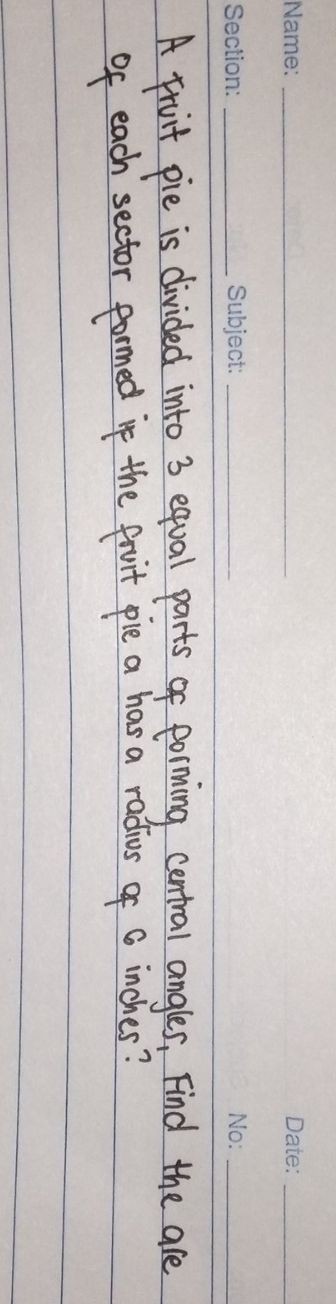 Name: Date:
Section: Subject: No:
A fruit pie is divided into 3 equal parts of forming central angles, Find the are
of each sector formed if the fruit pie a has a radius of 6 inches?